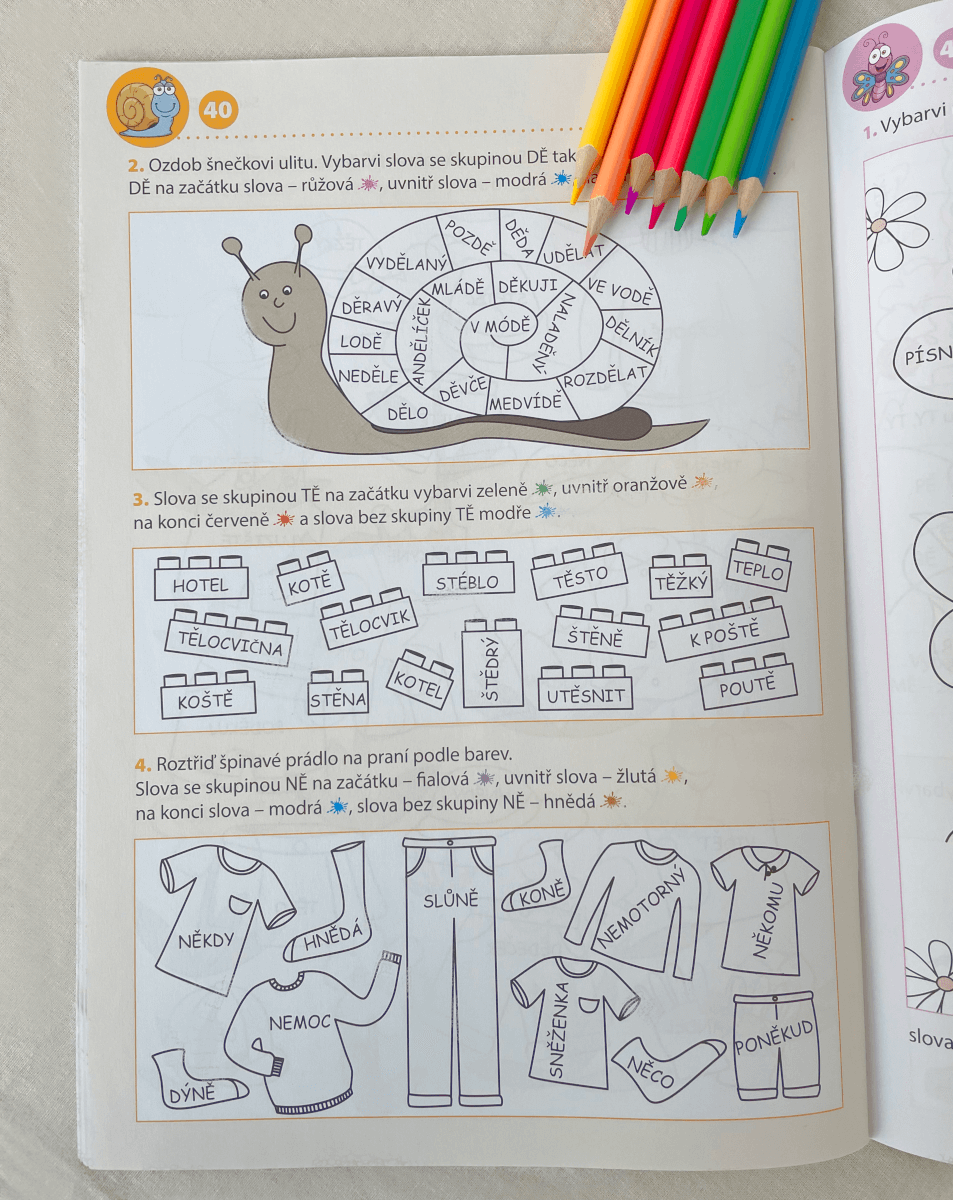 40
2. Ozdob šnečkovi ulitu. Vybarvi slova se skupinou DĚ tak
DĚ na začátku slova – růžová , uvnitř slova – modrá ,
POZDĚ
DĚDA
UDĚLAT
VYDĚLANÝ
VE VODĚ
MLÁDĚ
DĚKUJI
DĚRAVÝ
ANDĚLÍČEK
V MÓDĚ
NALADĚNÝ
DĚLNÍK
LODĚ
NEDĚLE
DĚVČE
ROZDĚLAT
DĚLO
MEDVÍDĚ
3. Slova se skupinou TĚ na začátku vybarvi zeleně , uvnitř oranžově ,
na konci červeně a slova bez skupiny TĚ modře .
HOTEL
KOTĚ
STÉBLO
TĚSTO
TĚŽKÝ
TEPLO
TĚLOCVIČNA
TĚLOCVIK
ŠTĚDRÝ
ŠTĚNĚ
K POŠTĚ
KOŠTĚ
STĚNA
KOTEL
UTĚSNIT
POUTĚ
4. Roztřiď špinavé prádlo na praní podle barev.
Slova se skupinou NĚ na začátku – fialová , uvnitř slova – žlutá ,
na konci slova – modrá , slova bez skupiny NĚ – hnědá .
NĚKDY
HNĚDÁ
SLŮNĚ
KONĚ
NEMOTORNÝ
NĚKOMU
NEMOC
SNĚŽENKA
DÝNĚ
NĚCO
PONĚKUD
1. Vybarvi
PÍSN
slova